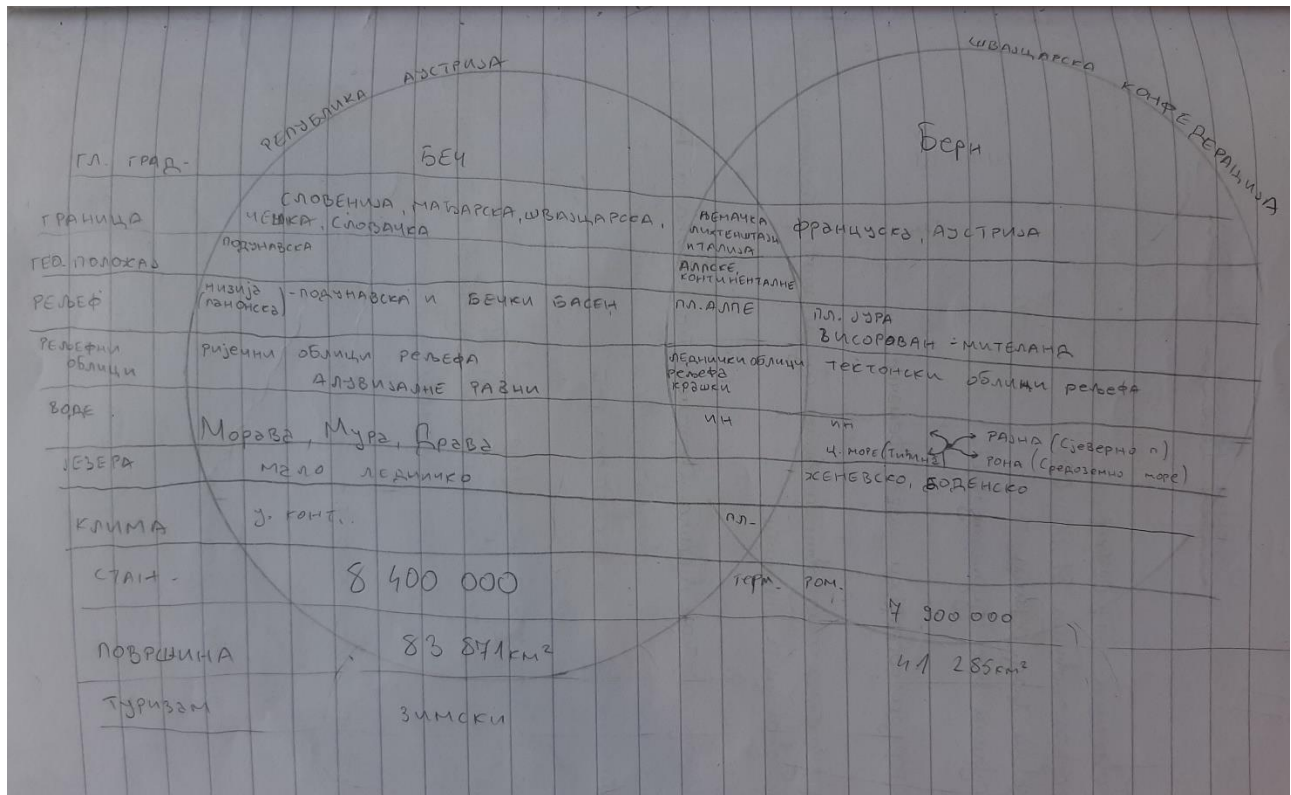 РЕПУБЛИКА АУСТРИЈА
ШВАЈЦАРСКА КОНФЕДЕРАЦИЈА
ГЛ. ГРАД- БЕЧ Берн
ГРАНИЦА СЛОВЕНИЈА, МАЂАРСКА, ШВАЈЦАРСКА, ЧЕШКА, СЛОВАЧКА
ЊЕМАЧКА
ЛИХТЕНШТАЈН
ИТАЛИЈА
Француска, АУСТРИЈА
ГЕО. ПОЛОЖАЈ ПОДУНАВСКА
АЛПСКЕ,
КОНТИНЕНТАЛНЕ
РЕЉЕФ низија (панонска) -ПОДУНАВСКА И БЕЧКИ БАСЕН ПЛ. АЛПЕ
ПЛ. ЈУРА
ВИСОРАВАН - МИТЕЛАНД
РЕЉЕФНИ
ОБЛИЦИ
ријечни облици РЕЉЕФА
АЛУВИЈАЛНЕ РАВНИ
ЛЕДНИЧКИ ОБЛИЦИ
рељефа
крашки
ТЕКТОНСКИ облици рељефа
ВОДЕ Морава, Мура, Драва ИН ИН
РАЈНА (Сјеверно п)
Ц. МОРЕ
РОНА (Средоземно море)
ЈЕЗЕРА мало ледничко ЖЕНЕВСКО, БОДЕНСКО
КЛИМА У. конт.. пл-
СТАН- 8 400 000 герм. ром.
7 900 000
ПОВРШИНА 83 871км² 41 285км²
Туризам зимски